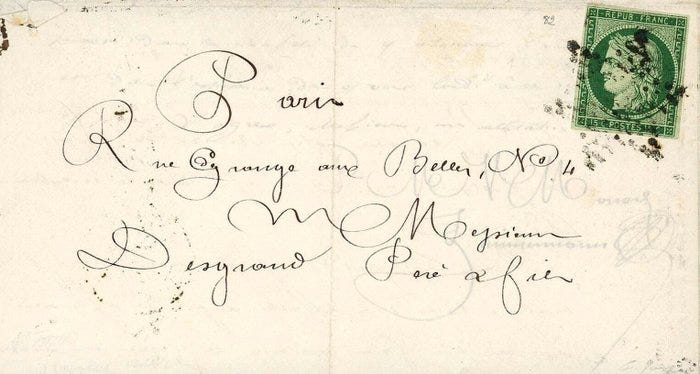 82
REPUB. FRANC.
15 C. POSTES 15
Paris
Rue Grange aux Belles, No 4
Messieurs
Desgrand Père & fils